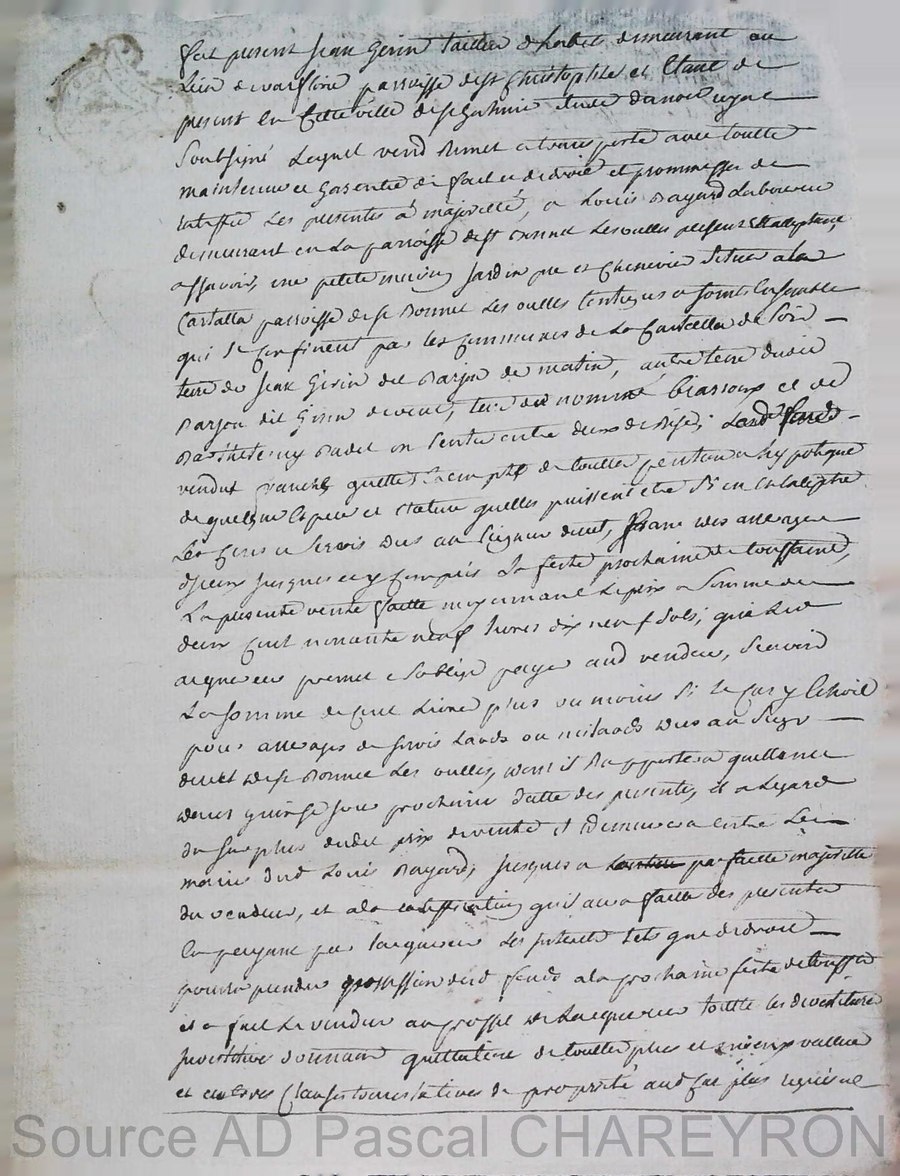 fut present Jean Girin tailleur d'habits demeurant au
lieu de parroisse de st Christophle et Etant de
present en Cette ville de st notaire royal
Soubsigné Lequel vend Remet et transporte avec toutte
maintenue et Garentie de fait et de droit et prommesse de
ratiffié Les presentes à majorité, a Louis Bayard Laboureur
demeurant en La parroisse de st Bonnet Les oulles present Et acceptant,
assavoir, une petite maison Jardin pre et Cheneviere Situés a la
parroisse de st Bonnet Les oulles Contigus et Joints Ensemble
qui Se Confinent par les Communes de La de Soir
terre de Jean Girin dit Barjon de matin, autre terre dudit
Barjon dit Girin de vent, terre du nommé et de
un Sentier entre deux de Bize; Lesd fonds
vendus francs quittes Exempts de touttes pention et hypotheque
de quelque Espece et nature quelles puissent être Si ce n'est
Les Cens et Servis dus au Seigneur direct, francs des arrerages
d'Iceux Jusques et y Compris La feste prochaine de toussaint,
La presente vente faitte moyennant Le prix et Somme de
deux Cent nonante neuf livres dix neuf Sols; que Led
acquereur promet et S'oblige payer aud vendeur, Scavoir
La Somme de Cent Livres plus ou moins Si Le Cas y Echoit
pour arrerages de Servis Lauds ou milauds dus au Seigr
direct de st Bonnet Les oulles, dont il Rapportera quittance
dans quinze Jours prochains datte des presentes, et a L'egard
du Surplus dudit prix de vente il demeurera entre Les
mains dud Louis Bayard, Jusques a parfaitte majorité
du vendeur, et a la ratiffication qu'il aura faitte des presentes
En payant par L'acquereur Les interets tels que de droit
pourra prendre possession desd fonds a la prochaine feste de toussaint
et a fait Le vendeur au proffit de L'acquereur touttes les devestitures
investitures donnant quittances de touttes plus et mieux vallues
et autres Clauses translatives de proprieté aud Cas plus requises
Source AD Pascal CHAREYRON